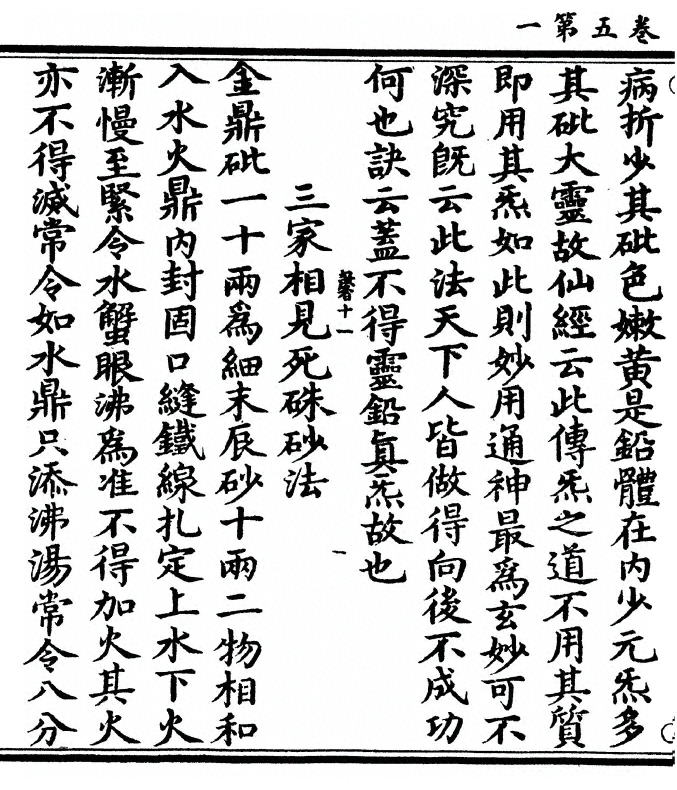 卷五第一
病折少其砒色嫩黄是鉛體在内少元炁多
其砒大靈故仙經云此傳炁之道不用其質
即用其炁如此則妙用通神最爲玄妙可不
深究旣云此法天下人皆做得向後不成功
何也訣云蓋不得靈鉛眞炁故也
十一
三家相見死硃砂法
金鼎砒一十兩爲細末辰砂十兩二物相和
入水火鼎内封固口縫鐵線扎定上水下火
漸慢至緊令水蟹眼沸爲准不得加火其火
亦不得減常令如水鼎只添沸湯常令八分